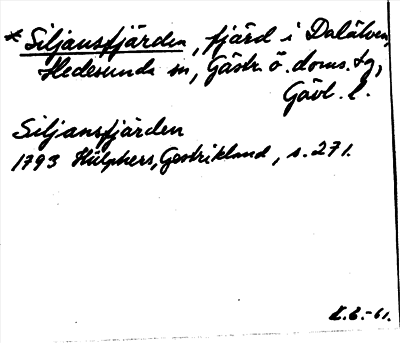 * Siljansfjärden, fjärd i Dalälven,
Hedesunda sn, Gästr. ö. doms. tg,
Gävl. l.
Siljansfjärden
1793 Hülphers, Gestrikland, s. 271.
E.B.-61.